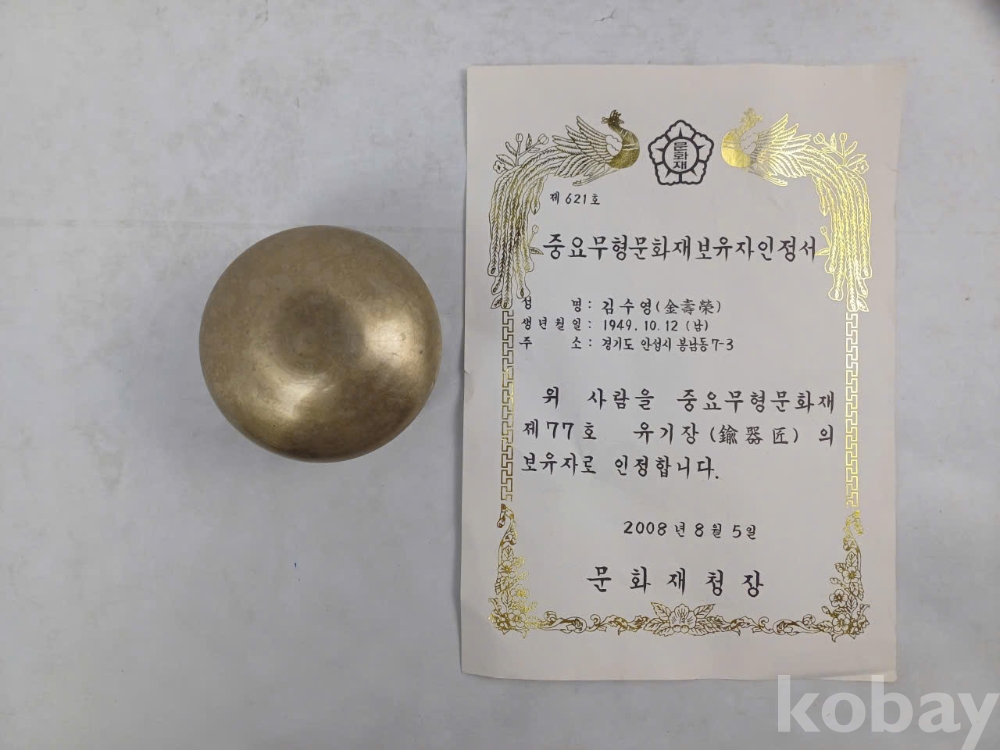 문화재
제 621 호
중요무형문화재보유자인정서
성 명 : 김수영 (金壽榮)
생년월일 : 1949. 10. 12 (남)
주 소 : 경기도 안성시 봉남동 7-3
위 사람을 중요무형문화재
제77호 유기장 (鍮器匠) 의
보유자로 인정합니다.
2008 년 8 월 5 일
문화재청장
kobay